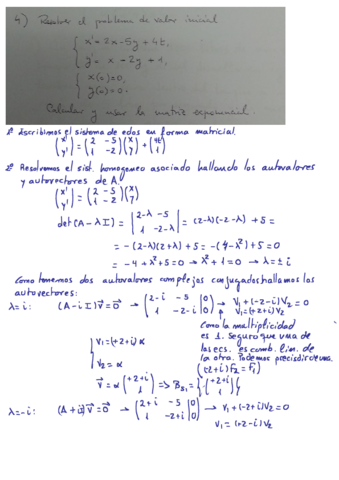 4) Resolver el problema de valor inicial
{ x' = 2x - 5y + 4t,
y' = x - 2y + 1,
{ x(0) = 0,
y(0) = 0.
Calcular y usar la matriz exponencial.
1º Escribimos el sistema de edos en forma matricial.
(x' y') = (2 -5 1 -2)(x y) + (4t 1)
2º Resolvemos el sist. homogeneo asociado hallando los autovalores
y autovectores de A.
(x' y') = (2 -5 1 -2)(x y)
det(A-λI) = |2-λ -5 1 -2-λ| = (2-λ)(-2-λ) + 5 =
= -(2-λ)(2+λ) + 5 = -(4-λ²) + 5 = 0
= -4 + λ² + 5 = 0 → λ² + 1 = 0 → λ = ± i
Como tenemos dos autovalores complejos conjugados hallamos los
autovectores:
λ = i: (A - i I) v⃗ = 0⃗ → (2-i -5 | 0 1 -2-i | 0) → v₁ + (-2-i) v₂ = 0
v₁ = (+2+i) v₂
Como la multiplicidad
es 1. Seguro que una de
las ecs. es comb. lin. de
la otra. Podemos prescindir de una.
(-2+i) F₂ = F₁)
{ v₁ = (+2+i) α
v₂ = α
v⃗ = α (+2+i 1) => B = { (+2+i 1) }
λ = -i: (A + i I) v⃗ = 0⃗ → (2+i -5 | 0 1 -2+i | 0) → v₁ + (-2+i) v₂ = 0
v₁ = (+2-i) v₂